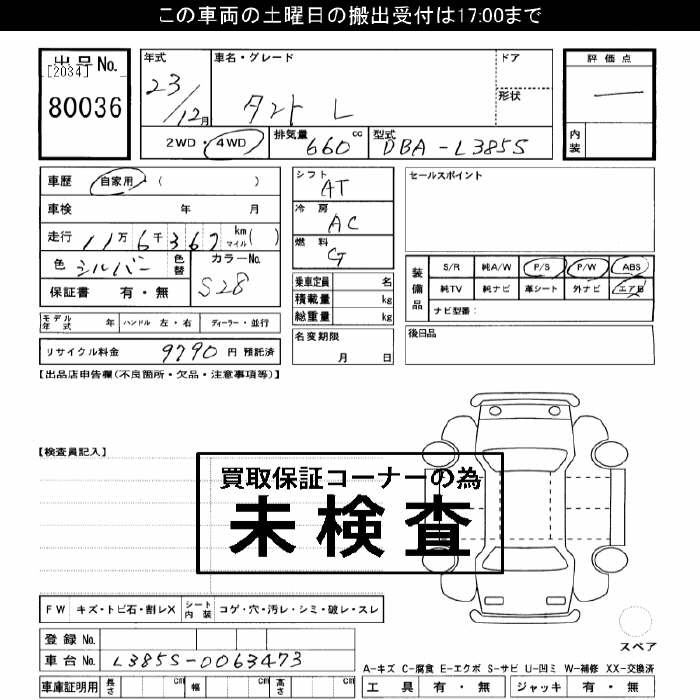 この車両の土曜日の搬出受付は17:00まで
出品No.
[2034]
80036
年式 車名・グレード ドア
23/12月 タント L
形状
2WD・4WD 排気量 660 cc 型式 DBA-L385S
評価点
―
内装
車歴 自家用・( )
車検 年 月
走行 11万6千367 km マイル( )
色 シルバー 色替 カラーNo. S28
保証書 有・無
シフト AT
冷房 AC
燃料 G
乗車定員 名
積載量 kg
総重量 kg
セールスポイント
装備品 S/R 純A/W P/S P/W ABS
純TV 純ナビ 革シート 外ナビ エアB
ナビ型番:
モデル年式 年 ハンドル 左・右 ディーラー・並行
リサイクル料金 9790 円 預託済
名変期限
月 日
後日品
【出品店申告欄(不良箇所・欠品・注意事項等)】
【検査員記入】
買取保証コーナーの為
未検査
FW キズ・トビ石・割レX シート内装 コゲ・穴・汚レ・シミ・破レ・スレ
登録No.
車台No. L385S-0063473
車庫証明用 長さ cm 幅 cm 高さ cm
スペア
A-キズ C-腐食 E-エクボ S-サビ U-凹ミ W-補修 XX-交換済
工具 有・無 ジャッキ 有・無